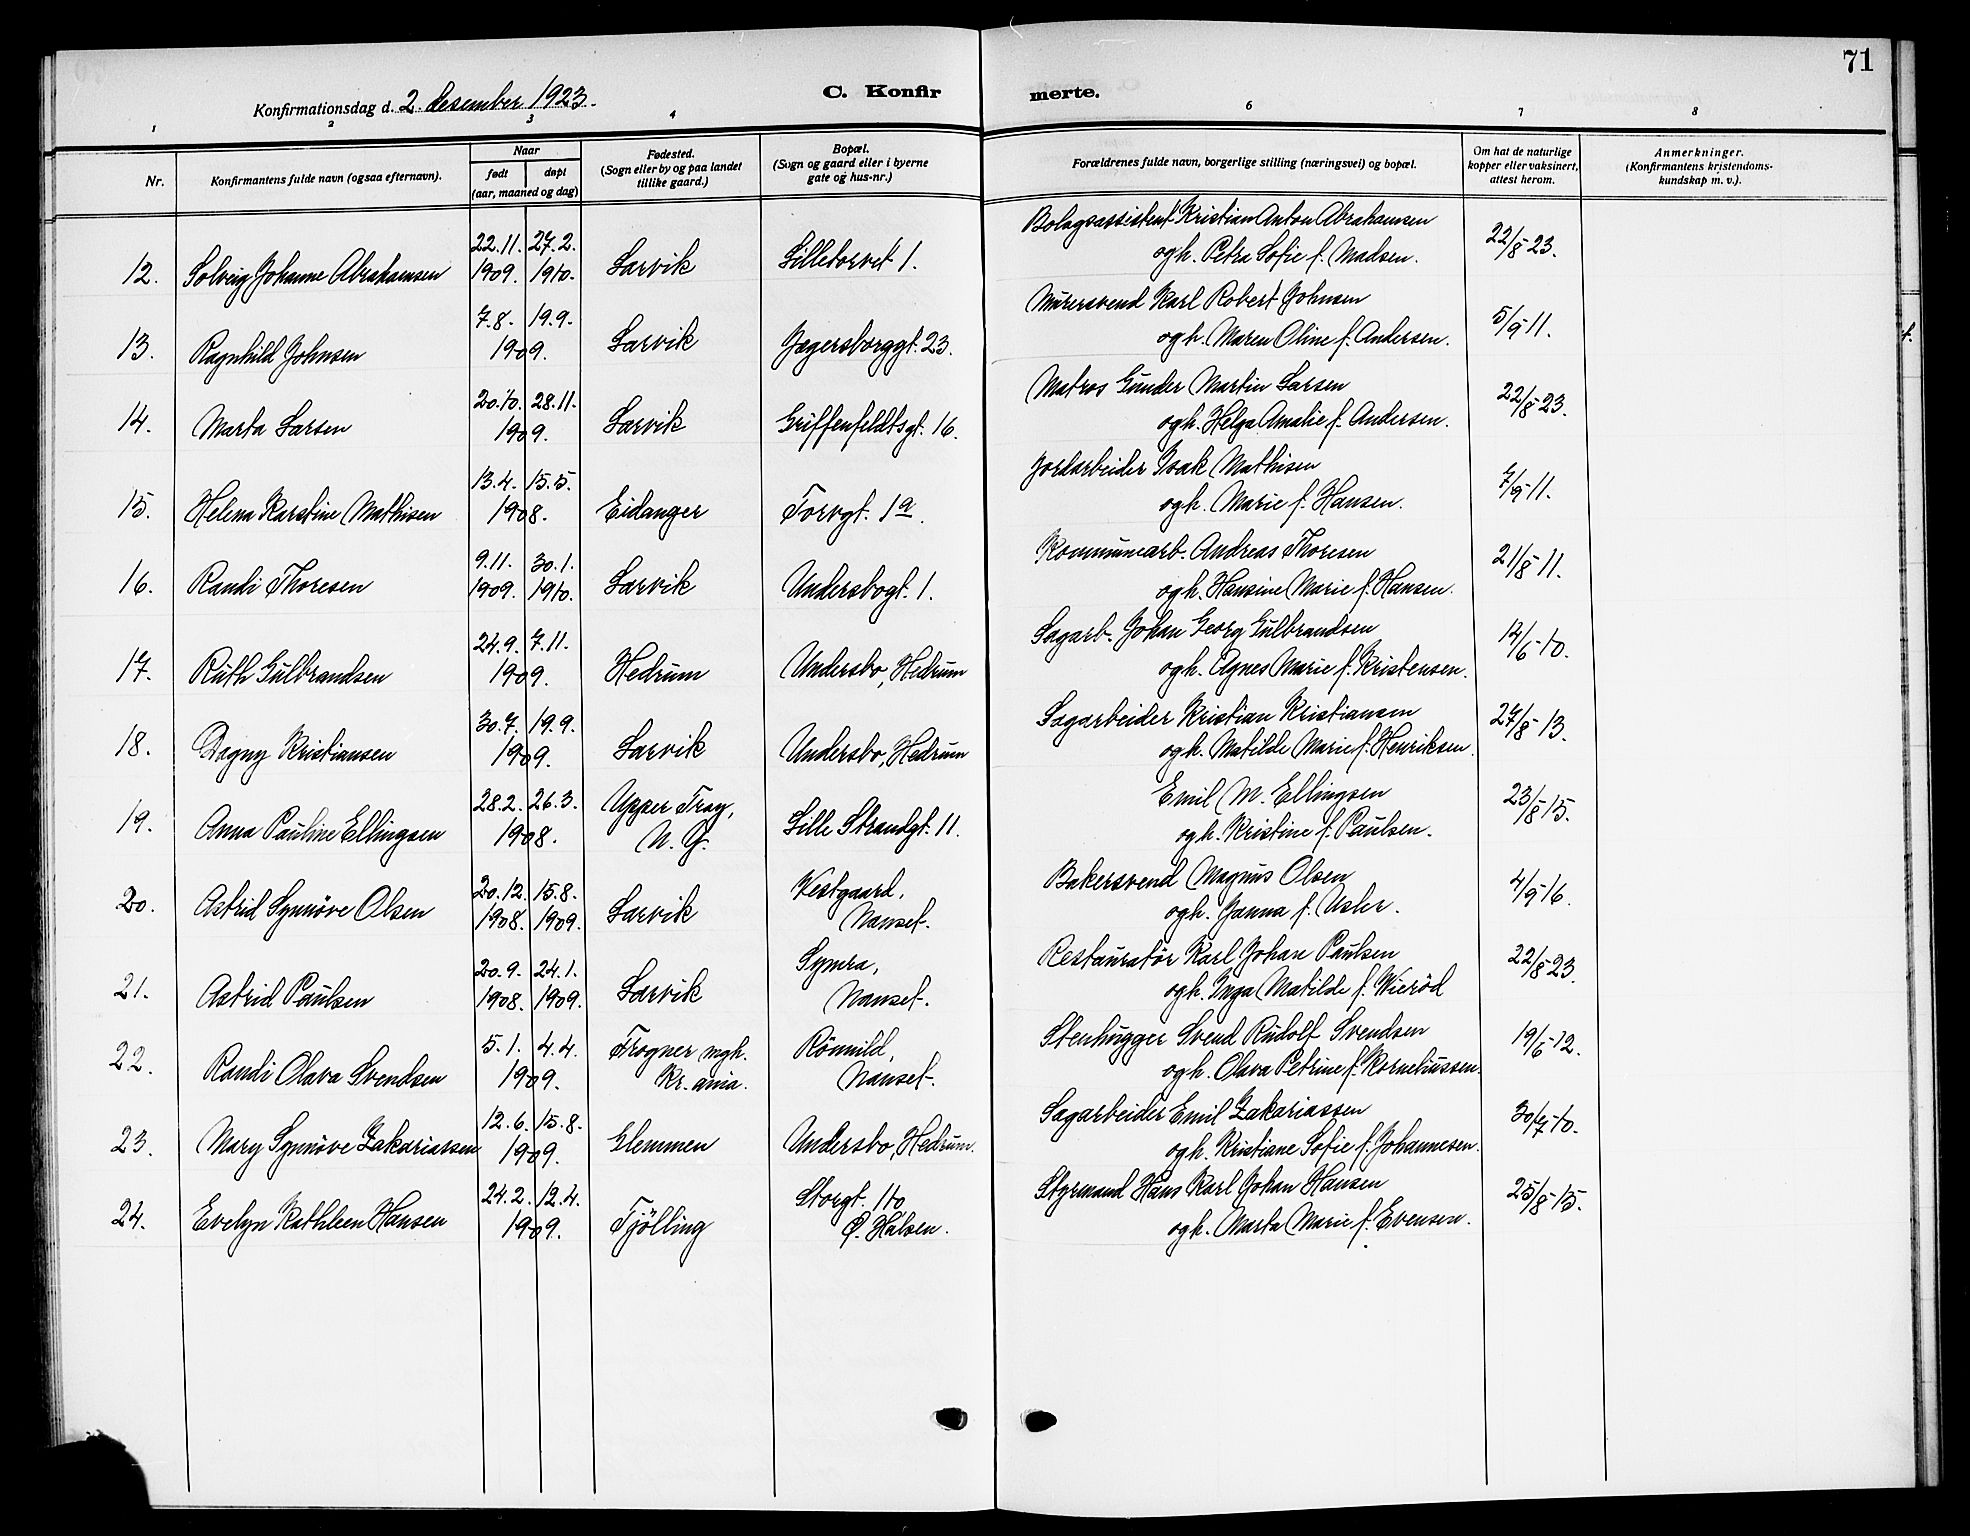 71
Konfirmationsdag d. 2. desember 1923.
C. Konfir
merte.
1 2 3 4 6 7 8
Nr.
Konfirmantens fulde navn (ogsaa efternavn).
Naar
født døpt
(aar, maaned og dag)
Fødested.
(Sogn eller by og paa landet
tillike gaard.)
Bopæl.
(Sogn og gaard eller i byerne
gate og hus-nr.)
Forældrenes fulde navn, borgerlige stilling (næringsvei) og bopæl.
Om hat de naturlige
kopper eller vaksinert,
attest herom.
Anmerkninger.
(Konfirmantens kristendoms-
kundskap m. v.).
22.11. 27.2. Bologsassistent Kristian Anton Abrahamsen
12. Solveig Johanne Abrahamsen 1909. 1910. Larvik Lilletorvet 1. og h. Petra Sofie f. Madsen. 22/8-23.
7.8. 19.9. Murersvend Karl Robert Johnsen
13. Ragnhild Johnsen 1909. Larvik Jegersborggt. 23. og h. Maren Oline f. Andersen. 5/9-11.
20.10. 28.11. Matros Gunder Martin Larsen
14. Marta Larsen 1909. Larvik Griffenfeldtsgt. 16. og h. Helga Amalie f. Andersen. 22/8-23.
13.4. 15.5. Jordarbeider Isak Mathisen
15. Helena Karstine Mathisen 1908. Eidanger Torvgt. 1a. og h. Marie f. Hansen. 7/9-11.
9.11. 30.1. Kommunearb. Andreas Thoresen
16. Randi Thoresen 1909. 1910. Larvik Undersbogt. 1. og h. Hansine Marie f. Hansen. 21/8-11.
24.9. 7.11. Sagarb. Johan Georg Gulbrandsen
17. Ruth Gulbrandsen 1909. Hedrum Undersbo, Hedrum og h. Agnes Marie f. Kristensen. /6-10.
30.7. 19.9. Sagarbeider Kristian Kristiansen
18. Dagny Kristiansen 1909. Larvik Undersbo, Hedrum og h. Matilde Marie f. Henriksen. 27/8-13.
28.2. 26.3. Upper Troy, Emil M. Ellingsen
19. Anna Pauline Ellingsen 1908. N. Y. Lille Strandgt. 11. og h. Kristine f. Paulsen. 23/8-15.
20.12. 15.8. Vestgaard, Bakersvend Magnus Olsen
20. Astrid Synnöve Olsen 1908. 1909. Larvik Nanset. og h. Janna f. Usler. 4/9-16.
20.9. 24.1. Symra, Restauratør Karl Johan Paulsen
21. Astrid Paulsen 1908. 1909. Larvik Nanset. og h. Inga Matilde f. Wieröd 22/8-23.
5.1. 4.4. Frogner mgh. Römild, Stenhugger Svend Rudolf Svendsen
22. Randi Olava Svendsen 1909. Kr.ania. Nanset. og h. Olava Petrine f. Korneliussen. 19/6-12.
12.6. 15.8. Sagarbeider Emil Zakariassen
23. Mary Synnöve Zakariassen 1909. Glemmen Undersbo, Hedrum. og h. Kristiane Sofie f. Johannesen. 30/7-10.
24.2. 12.4. Storgt. 110 Styrmand Hans Karl Johan Hansen
24. Evelyn Kathleen Hansen 1909. Tjölling Ø. Halsen. og h. Marta Marie f. Evensen. 25/8-15.